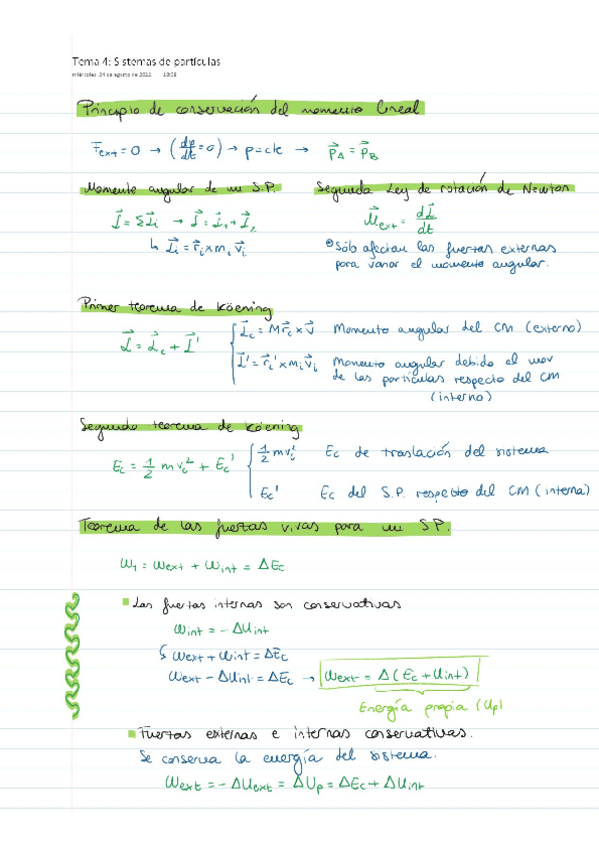 Tema 4: Sistemas de partículas
miércoles, 24 de agosto de 2022 18:08
Principio de conservación del momento lineal
F⃗ext = 0 → (dp⃗/dt = 0) → p = cte → p⃗A = p⃗B
Momento angular de un S.P.
L⃗ = ΣL⃗i → L⃗ = L⃗1 + L⃗2
↳ L⃗i = r⃗i × mi v⃗i
Segunda Ley de rotación de Newton
M⃗ext = dL⃗/dt
Sólo afectan las fuerzas externas
para variar el momento angular.
Primer teorema de Köening
L⃗ = L⃗c + L⃗'
L⃗c = M r⃗c × v⃗ Momento angular del CM (externo)
L⃗' = r⃗i' × mi v⃗i Momento angular debido al mov
de las partículas respecto del CM
(interno)
Segundo teorema de Köening
Ec = 1/2 m vc² + Ec'
1/2 m vc² Ec de traslación del sistema
Ec' Ec del S.P. respecto del CM (interna)
Teorema de las fuerzas vivas para un S.P.
W1 = Wext + Wint = ΔEc
Las fuerzas internas son conservativas
Wint = -ΔUint
↳ Wext + Wint = ΔEc
Wext - ΔUint = ΔEc → Wext = Δ(Ec + Uint)
Energía propia (Up)
Fuerzas externas e internas conservativas.
Se conserva la energía del sistema.
Wext = -ΔUext = ΔUp = ΔEc + ΔUint